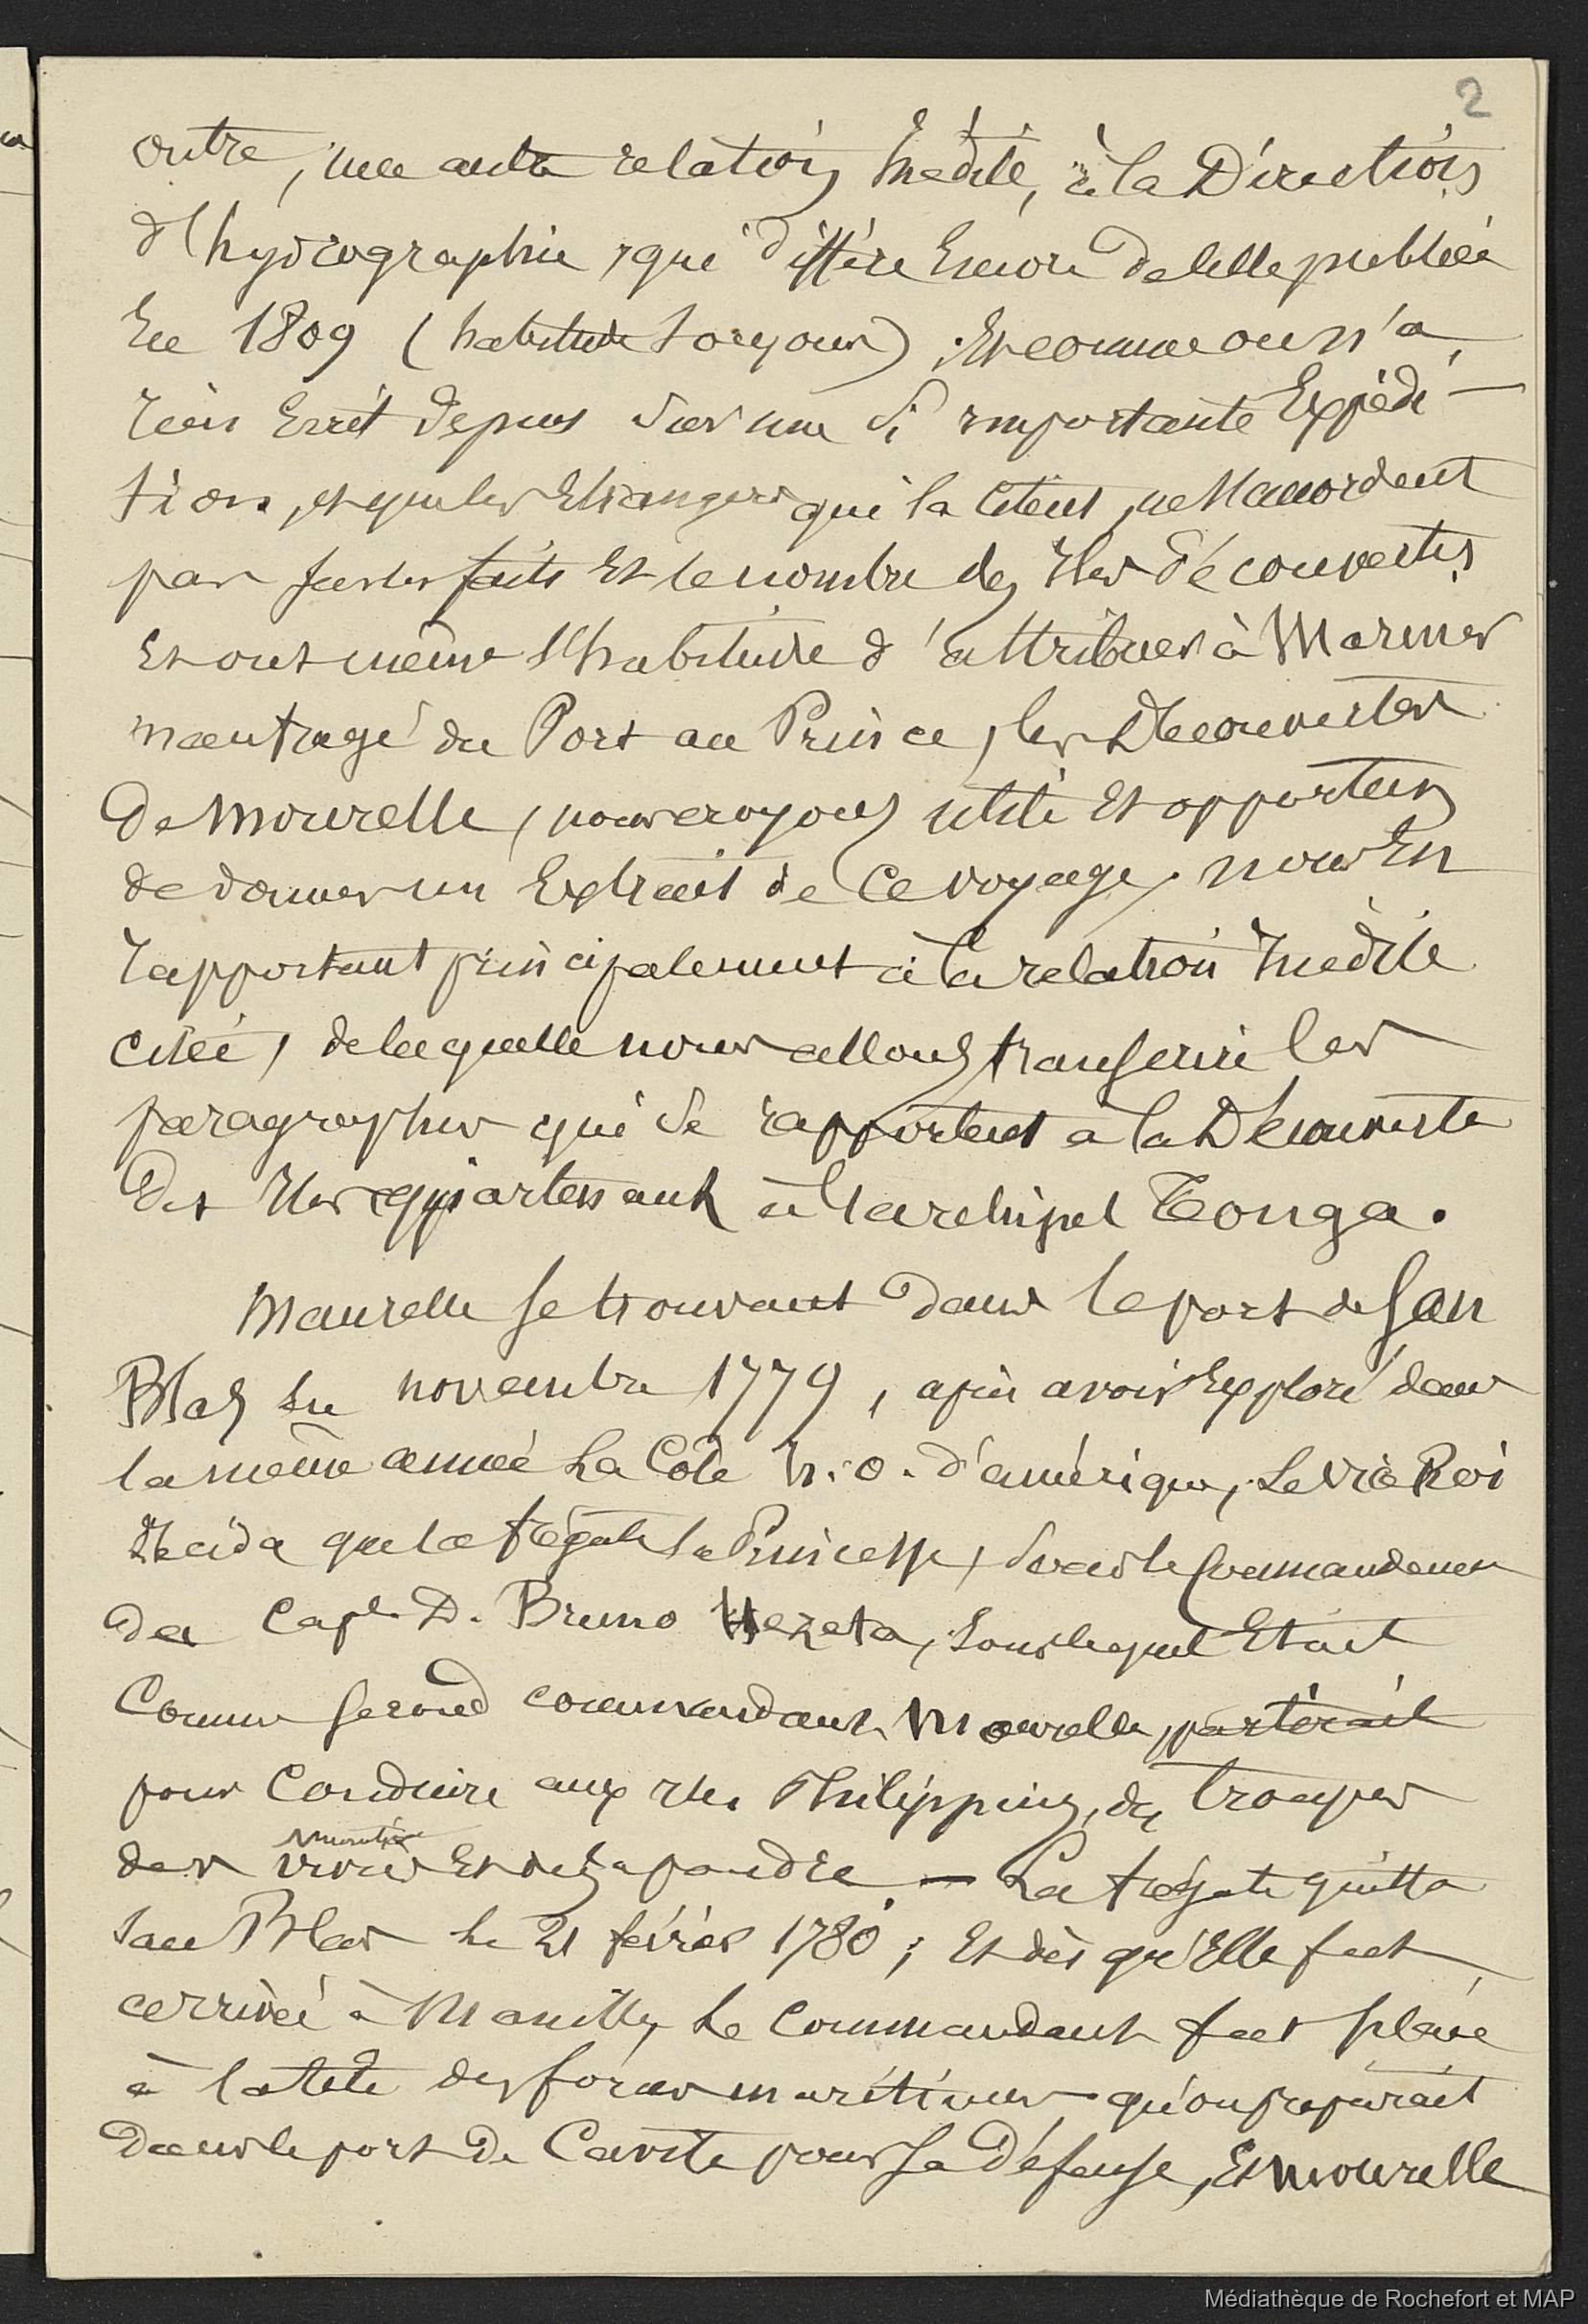 2
outre, une autre relation Inédite, à la Direction
d'hydrographie, qui diffère Encore de celle publiée
En 1809 (habitude toujours). Et comme on n'a
rien Ecrit depuis sur une si importante Expédi-
tion, et que les Etrangers qui la citent, ne s'accordent
pas sur les faits Et le nombre des Iles découvertes
Et ont même l'habitude d'attribuer à Mariner
naufragé du Port au Prince, les Découvertes
de Mourelle, nous croyons utile Et opportun
de donner un Extrait de ce voyage, nous En
rapportant principalement à la relation Inédite
citée, de laquelle nous allons transcrire les
paragraphes qui se rapportent à la Découverte
des Iles appartenant à l'archipel Tonga.
Maurelle se trouvant dans le port de San
Blas En novembre 1779, après avoir Exploré dans
la même année La Côte N.O. d'amérique, Le Vice Roi
Décida que la frégate la Princesse, sous le Commandement
du Cape D. Bruno Hezeta, sous lequel Etait
Comme second commandant Mourelle, partirait
pour Conduire aux Iles Philippines, des troupes
des vivres Et de la poudre. — La frégate quitta
San Blas le 21 février 1780; Et dès qu'Elle fut
arrivée à Manille, Le Commandant fut placé
à la tête des forces maritimes qu'on préparait
dans le port de Cavite pour sa défense, Et Mourelle
Médiathèque de Rochefort et MAP